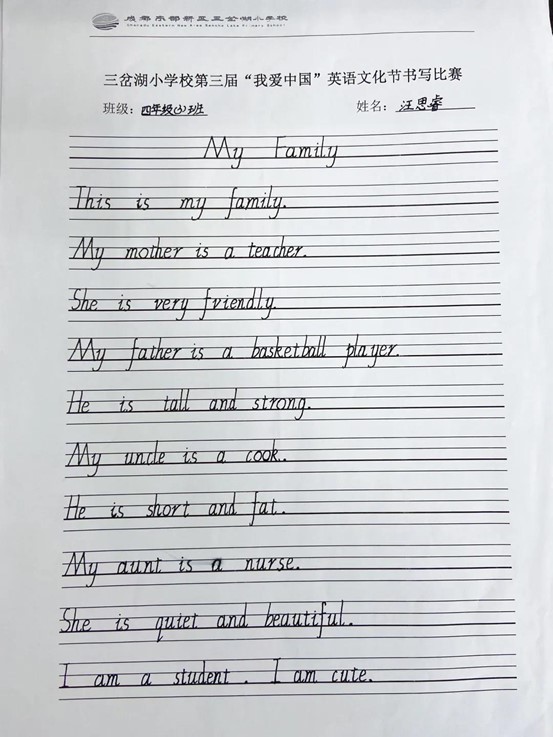 成都东部新区三岔湖小学校
Chengdu Eastern New Area Sancha Lake Primary School
三岔湖小学校第三届“我爱中国”英语文化节书写比赛
班级：四年级(3)班 姓名：汪思睿
My Family
This is my family.
My mother is a teacher.
She is very friendly.
My father is a basketball player.
He is tall and strong.
My uncle is a cook.
He is short and fat.
My aunt is a nurse.
She is quiet and beautiful.
I am a student . I am cute.